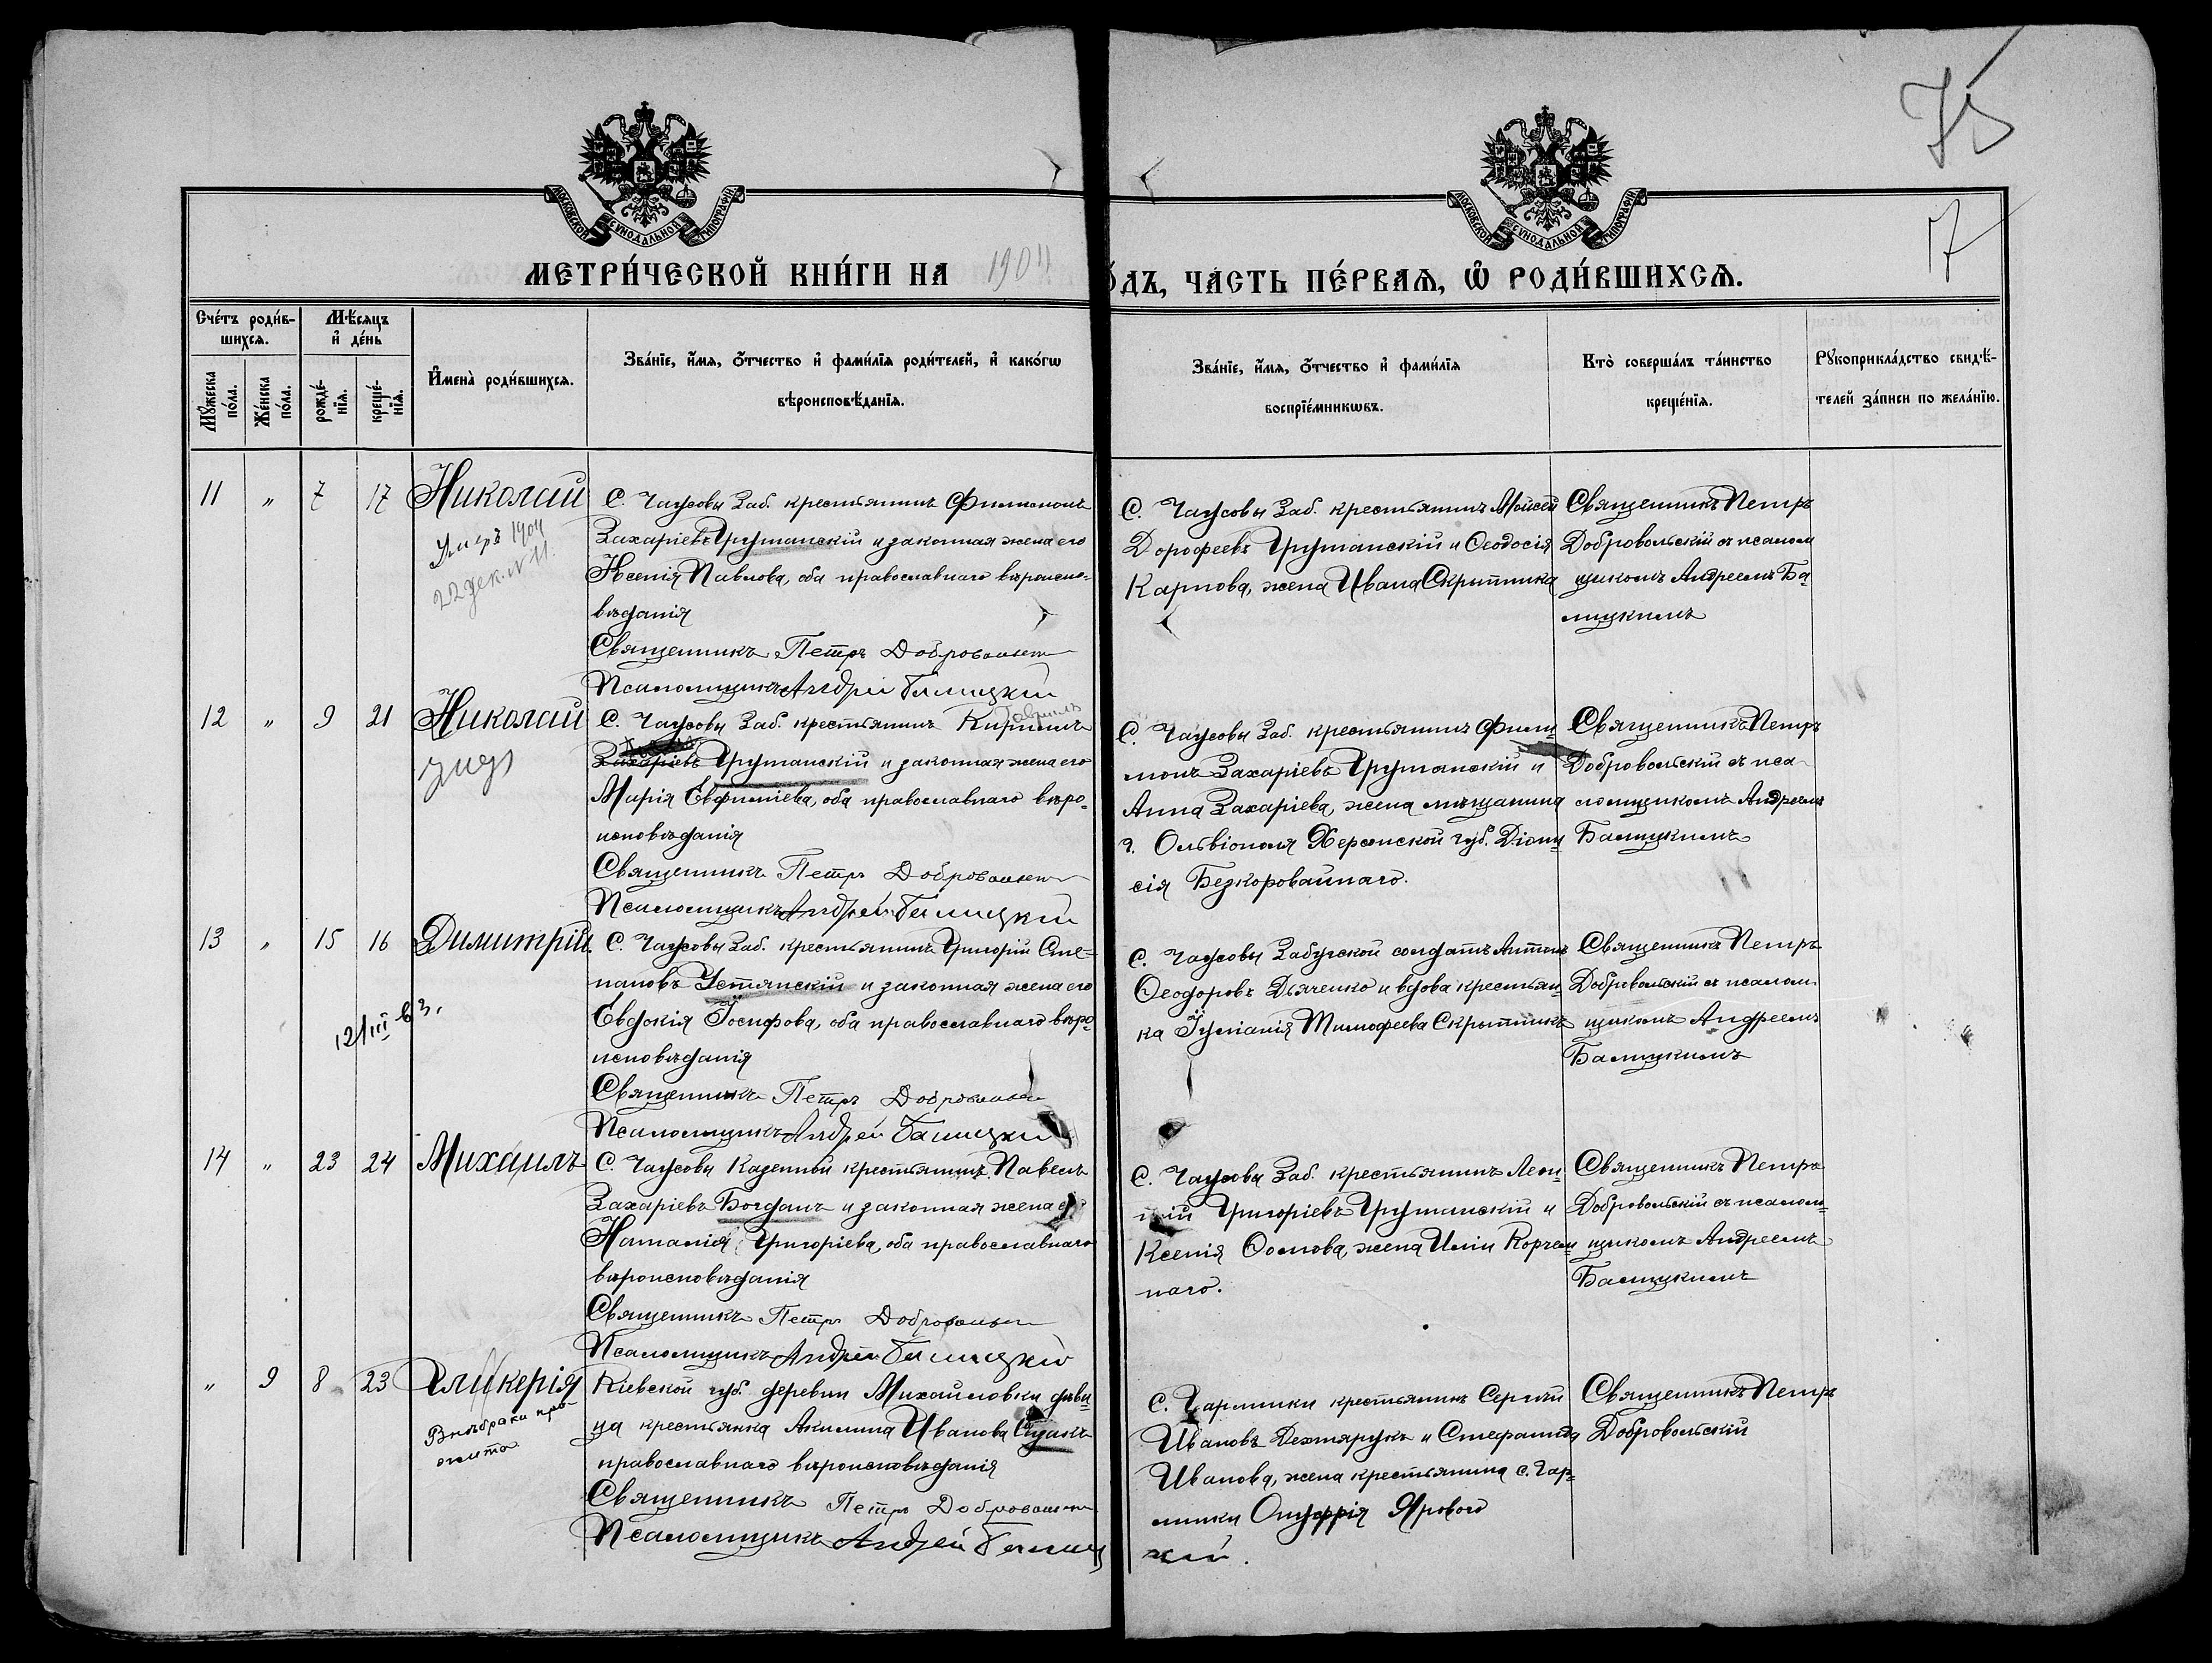 75
17
МОСКОВСКОЙ СѴНОДАЛЬНОЙ ТИПОГРАФІИ
МОСКОВСКОЙ СѴНОДАЛЬНОЙ ТИПОГРАФІИ
МЕТРИ́ЧЕСКОЙ КНИ́ГИ НА 1904
О́ДЪ, ЧА́СТЬ ПЕ́РВАѦ, Ѡ҆ РОДИ́ВШИХСѦ.
Сче́тъ роди́в-
шихсѧ.
Мѣ́сѧцъ
и҆ де́нь
Мꙋ́жеска по́ла.
Же́нска по́ла.
рожде́-
нїѧ.
креще́-
нїѧ.
И҆мена̀ роди́вшихсѧ.
Зва́нїе, и҆́мѧ, ѻ҆́тчество и҆ фами́лїѧ роди́телей, и҆ како́гѡ
вѣроисповѣ́данїѧ.
Зва́нїе, и҆́мѧ, ѻ҆́тчество и҆ фами́лїѧ
воспрїе́мникѡвъ.
Кто̀ соверша́лъ та́инство
креще́нїѧ.
Рꙋкоприкла́дство свидѣ́-
телей за́писи по жела́нїю.
11 „ 7 17 Николай
Умеръ 1904
22 дек. № 11.
С. Чаусовы Заб. крестьянинъ Филимонъ
Захаріевъ Грушанскій и законная жена его
Ксенія Павлова, оба православнаго вѣроиспо-
вѣданія
Священникъ Петръ Добровольскій
Псаломщикъ Андрей Балицкій
С. Чаусовы Заб. крестьянинъ Моисей
Дорофеевъ Грушанскій и Ѳеодосія
Карпова, жена Ивана Скрыпника
Священникъ Петръ
Добровольскій съ псалом
щикомъ Андреемъ Ба-
лицкимъ
12 „ 9 21 Николай
С. Чаусовы Заб. крестьянинъ Кириллъ
Захаріевъ Грушанскій и законная жена его
Марія Евфиміева, оба православнаго вѣро-
исповѣданія
Священникъ Петръ Добровольскій
Псаломщикъ Андрей Балицкій
С. Чаусовы Заб. крестьянинъ Фили-
монъ Захаріевъ Грушанскій и
Анна Захаріева, жена мѣщанина
г. Ольвіополя Херсонской губ. Діони-
сія Безкоровайнаго.
Священникъ Петръ
Добровольскій съ пса-
ломщикомъ Андреемъ
Балицкимъ
13 „ 15 16 Димитрій
12/III вз.
С. Чаусовы Заб. крестьянинъ Григорій Сте-
пановъ Устянскій и законная жена его
Евдокія Іосифова, оба православнаго вѣро-
исповѣданія
Священникъ Петръ Добровольскій
Псаломщикъ Андрей Балицкій
С. Чаусовы Забугской солдатъ Антонъ
Ѳеодоровъ Дьяченко и вдова крестьян-
ка Іуліанія Тимофеева Скрыпникъ
Священникъ Петръ
Добровольскій съ псалом-
щикомъ Андреемъ
Балицкимъ
14 „ 23 24 Михаилъ
С. Чаусовы Казенной крестьянинъ Павелъ
Захаріевъ Богданъ и законная жена его
Наталія Григоріева, оба православнаго
вѣроисповѣданія
Священникъ Петръ Добровольскій
Псаломщикъ Андрей Балицкій
С. Чаусовы Заб. крестьянинъ Леон-
тій Григоріевъ Грушанскій и
Ксенія Ѳомова, жена Иліи Корчем-
наго.
Священникъ Петръ
Добровольскій съ псалом-
щикомъ Андреемъ
Балицкимъ
„ 9 8 23 Гликерія
Внѣбрачно при-
жита
Кіевской губ. деревни Михайловки дѣви-
ца крестьянка Акилина Иванова
православнаго вѣроисповѣданія
Священникъ Петръ Добровольскій
Псаломщикъ Андрей Балиц
кій.
С. Чармики крестьянинъ Сергѣй
Ивановъ Дехтярукъ и Стефанида
Иванова, жена крестьянина с. Чар-
мики Онуфрія Ярового
Священникъ Петръ
Добровольскій